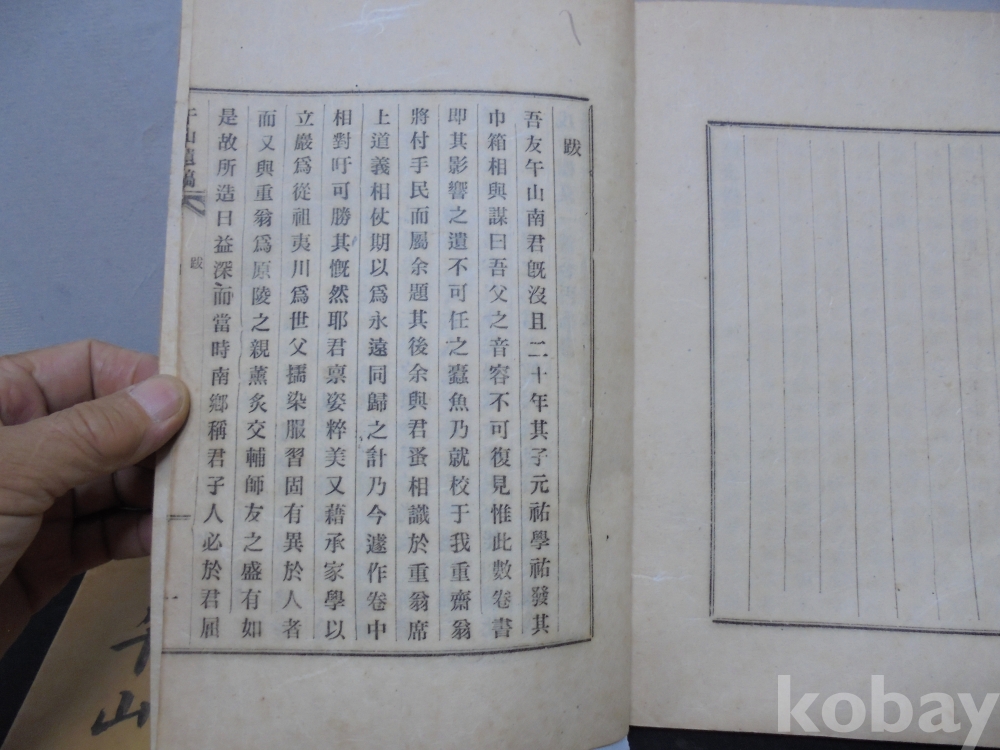 跋
吾友午山南君旣沒且二十年其子元祐學祐發其
巾箱相與謀曰吾父之音容不可復見惟此數卷書
卽其影響之遺不可任之蠹魚乃就校于我重齋翁
將付手民而屬余題其後余與君蚤相識於重翁席
上道義相仗期以爲永遠同歸之計乃今遽作卷中
相對吁可勝其慨然耶君禀姿粹美又藉承家學以
立巖爲從祖夷川爲世父擩染服習固有異於人者
而又與重翁爲原陵之親薰炙交輔師友之盛有如
是故所造日益深而當時南鄉稱君子人必於君屈
午山遺稿
跋
一
山
kobay